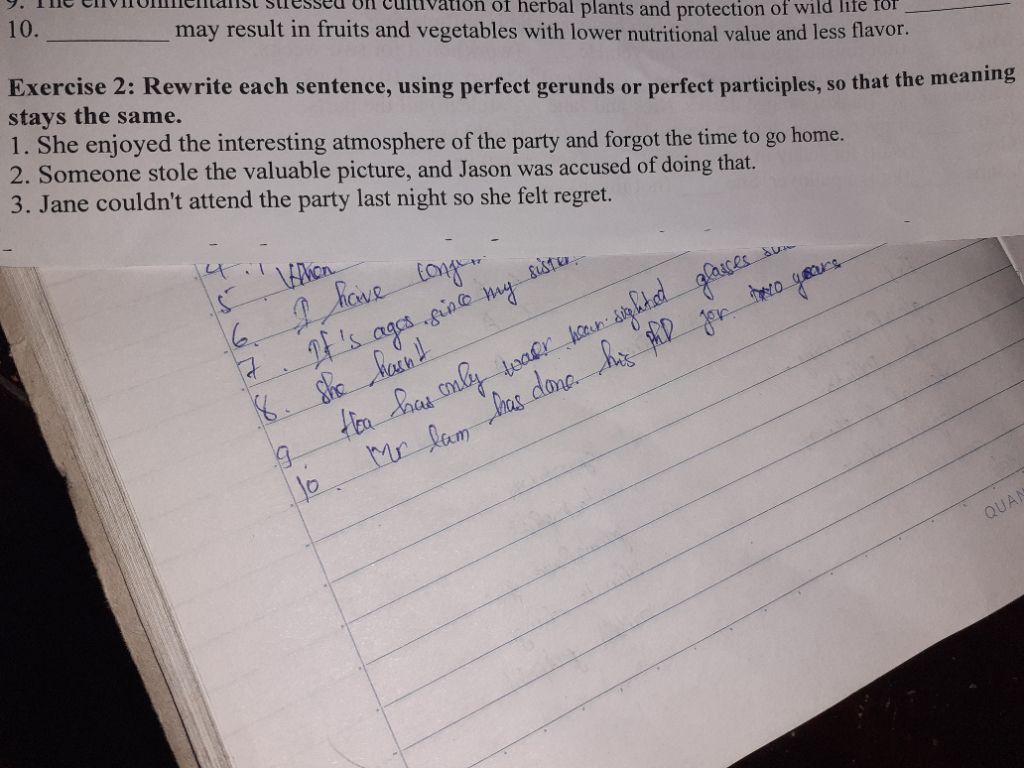 9. The environmentalist stressed on cultivation of herbal plants and protection of wild life for __________
10. __________ may result in fruits and vegetables with lower nutritional value and less flavor.
Exercise 2: Rewrite each sentence, using perfect gerunds or perfect participles, so that the meaning
stays the same.
1. She enjoyed the interesting atmosphere of the party and forgot the time to go home.
2. Someone stole the valuable picture, and Jason was accused of doing that.
3. Jane couldn't attend the party last night so she felt regret.
4. When
5. I have
6. It's ages since my sister
7. She hasn't
8. Hoa has only glasses
9. Mr Lam has done his PhD for years
10.
QUAN